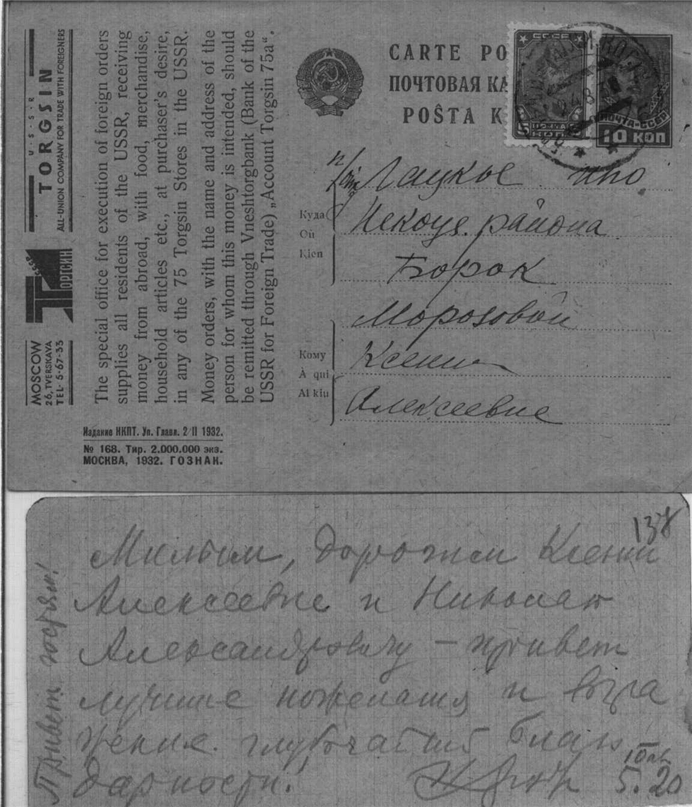 U·S·S·R
TORGSIN
ALL-UNION COMPANY FOR TRADE WITH FOREIGNERS
ТОРГСИН
MOSCOW
26, TVERSKAYA
TEL· 5-67-35
The special office for execution of foreign orders
supplies all residents of the USSR, receiving
money from abroad, with food, merchandise,
household articles etc., at purchaser's desire,
in any of the 75 Torgsin Stores in the USSR.
Money orders, with the name and address of the
person for whom this money is intended, should
be remitted through Vneshtorgbank (Bank of the
USSR for Foreign Trade) „Account Torgsin 75a“.
Издание НКПТ. Уп. Главл. 2/II 1932.
№ 168. Тир. 2.000.000 экз.
МОСКВА, 1932. ГОЗНАК.
CARTE PO
ПОЧТОВАЯ КА
POŜTA K
СССР
5
ПОЧТА СССР
10 КОП
п/о
Куда
Où
Kien
Некоуз. района
Борок
Морозовой
Кому
À qui
Al kiu
Ксении
Алексеевне
138
Милым, дорогим Ксении
Алексеевне и Николаю
Александровичу – привет
лучшие пожелания и выра
жение глубочайшей благо
дарности!
5.20
Привет